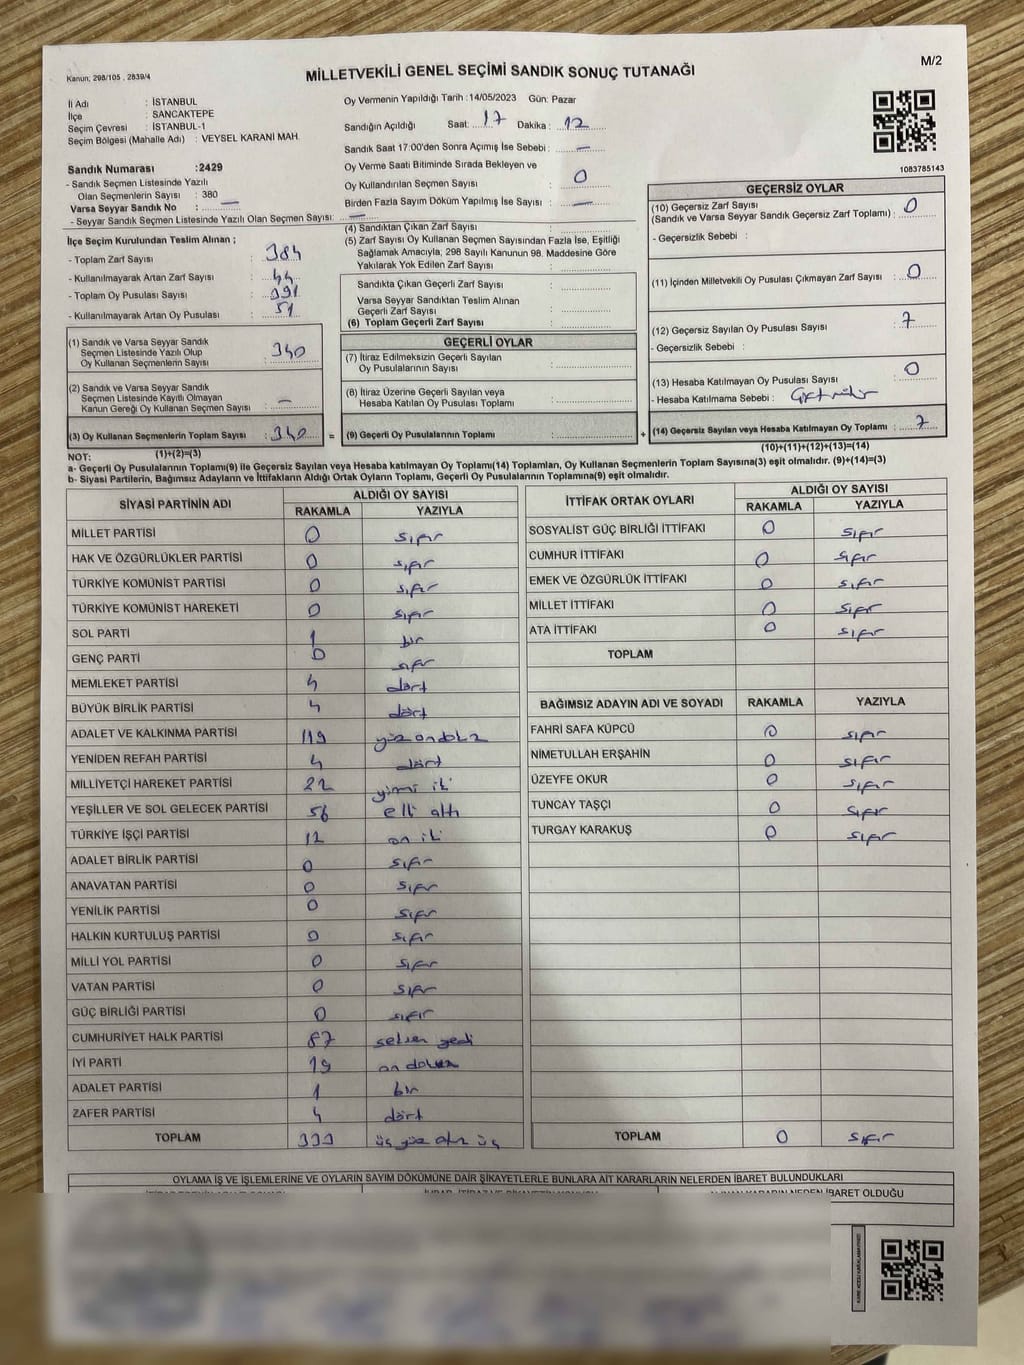 Kanun; 298/105 , 2839/4
MİLLETVEKİLİ GENEL SEÇİMİ SANDIK SONUÇ TUTANAĞI
M/2
İl Adı : İSTANBUL
İlçe : SANCAKTEPE
Seçim Çevresi : İSTANBUL-1
Seçim Bölgesi (Mahalle Adı) : VEYSEL KARANİ MAH.
Oy Vermenin Yapıldığı Tarih :14/05/2023 Gün: Pazar
Sandığın Açıldığı Saat: 17 Dakika : 12
Sandık Saat 17:00'den Sonra Açımış İse Sebebi : —
Oy Verme Saati Bitiminde Sırada Bekleyen ve
Oy Kullandırılan Seçmen Sayısı : 0
Birden Fazla Sayım Döküm Yapılmış İse Sayısı : —
1083785143
Sandık Numarası :2429
- Sandık Seçmen Listesinde Yazılı
Olan Seçmenlerin Sayısı : 380
Varsa Seyyar Sandık No : —
- Seyyar Sandık Seçmen Listesinde Yazılı Olan Seçmen Sayısı: —
İlçe Seçim Kurulundan Teslim Alınan ;
- Toplam Zarf Sayısı : 384
- Kullanılmayarak Artan Zarf Sayısı : 44
- Toplam Oy Pusulası Sayısı : 391
- Kullanılmayarak Artan Oy Pusulası : 51
(1) Sandık ve Varsa Seyyar Sandık
Seçmen Listesinde Yazılı Olup
Oy Kullanan Seçmenlerin Sayısı : 340
(2) Sandık ve Varsa Seyyar Sandık
Seçmen Listesinde Kayıtlı Olmayan
Kanun Gereği Oy Kullanan Seçmen Sayısı : —
(3) Oy Kullanan Seçmenlerin Toplam Sayısı : 340 =
(1)+(2)=(3)
(4) Sandıktan Çıkan Zarf Sayısı :
(5) Zarf Sayısı Oy Kullanan Seçmen Sayısından Fazla İse, Eşitliği
Sağlamak Amacıyla; 298 Sayılı Kanunun 98. Maddesine Göre
Yakılarak Yok Edilen Zarf Sayısı :
Sandıkta Çıkan Geçerli Zarf Sayısı :
Varsa Seyyar Sandıktan Teslim Alınan
Geçerli Zarf Sayısı :
(6) Toplam Geçerli Zarf Sayısı :
GEÇERLİ OYLAR
(7) İtiraz Edilmeksizin Geçerli Sayılan
Oy Pusulalarının Sayısı :
(8) İtiraz Üzerine Geçerli Sayılan veya
Hesaba Katılan Oy Pusulası Toplamı :
(9) Geçerli Oy Pusulalarının Toplamı : +
GEÇERSİZ OYLAR
(10) Geçersiz Zarf Sayısı
(Sandık ve Varsa Seyyar Sandık Geçersiz Zarf Toplamı) : 0
- Geçersizlik Sebebi :
(11) İçinden Milletvekili Oy Pusulası Çıkmayan Zarf Sayısı : 0
(12) Geçersiz Sayılan Oy Pusulası Sayısı : 7
- Geçersizlik Sebebi :
(13) Hesaba Katılmayan Oy Pusulası Sayısı : 0
- Hesaba Katılmama Sebebi :
(14) Geçersiz Sayılan veya Hesaba Katılmayan Oy Toplamı : 7
(10)+(11)+(12)+(13)=(14)
NOT:
a- Geçerli Oy Pusulalarının Toplamı(9) ile Geçersiz Sayılan veya Hesaba katılmayan Oy Toplamı(14) Toplamları, Oy Kullanan Seçmenlerin Toplam Sayısına(3) eşit olmalıdır. (9)+(14)=(3)
b- Siyasi Partilerin, Bağımsız Adayların ve İttifakların Aldığı Ortak Oyların Toplamı, Geçerli Oy Pusulalarının Toplamına(9) eşit olmalıdır.
SİYASİ PARTİNİN ADI ALDIĞI OY SAYISI
RAKAMLA YAZIYLA
MİLLET PARTİSİ 0 sıfır
HAK VE ÖZGÜRLÜKLER PARTİSİ 0 sıfır
TÜRKİYE KOMÜNİST PARTİSİ 0 sıfır
TÜRKİYE KOMÜNİST HAREKETİ 0 sıfır
SOL PARTİ 1 bir
GENÇ PARTİ 0 sıfır
MEMLEKET PARTİSİ 4 dört
BÜYÜK BİRLİK PARTİSİ 4 dört
ADALET VE KALKINMA PARTİSİ 119 yüz ondokuz
YENİDEN REFAH PARTİSİ 4 dört
MİLLİYETÇİ HAREKET PARTİSİ 22 yirmi iki
YEŞİLLER VE SOL GELECEK PARTİSİ 56 elli altı
TÜRKİYE İŞÇİ PARTİSİ 12 on iki
ADALET BİRLİK PARTİSİ 0 sıfır
ANAVATAN PARTİSİ 0 sıfır
YENİLİK PARTİSİ 0 sıfır
HALKIN KURTULUŞ PARTİSİ 0 sıfır
MİLLİ YOL PARTİSİ 0 sıfır
VATAN PARTİSİ 0 sıfır
GÜÇ BİRLİĞİ PARTİSİ 0 sıfır
CUMHURİYET HALK PARTİSİ 87 seksen yedi
İYİ PARTİ 19 on dokuz
ADALET PARTİSİ 1 bir
ZAFER PARTİSİ 4 dört
TOPLAM 333 üç yüz otuz üç
İTTİFAK ORTAK OYLARI ALDIĞI OY SAYISI
RAKAMLA YAZIYLA
SOSYALİST GÜÇ BİRLİĞİ İTTİFAKI 0 sıfır
CUMHUR İTTİFAKI 0 sıfır
EMEK VE ÖZGÜRLÜK İTTİFAKI 0 sıfır
MİLLET İTTİFAKI 0 sıfır
ATA İTTİFAKI 0 sıfır
TOPLAM
BAĞIMSIZ ADAYIN ADI VE SOYADI RAKAMLA YAZIYLA
FAHRİ SAFA KÜPCÜ 0 sıfır
NİMETULLAH ERŞAHİN 0 sıfır
ÜZEYFE OKUR 0 sıfır
TUNCAY TAŞÇI 0 sıfır
TURGAY KARAKUŞ 0 sıfır
TOPLAM 0 sıfır
OYLAMA İŞ VE İŞLEMLERİNE VE OYLARIN SAYIM DÖKÜMÜNE DAİR ŞİKAYETLERLE BUNLARA AİT KARARLARIN NELERDEN İBARET BULUNDUKLARI
İBARET OLDUĞU